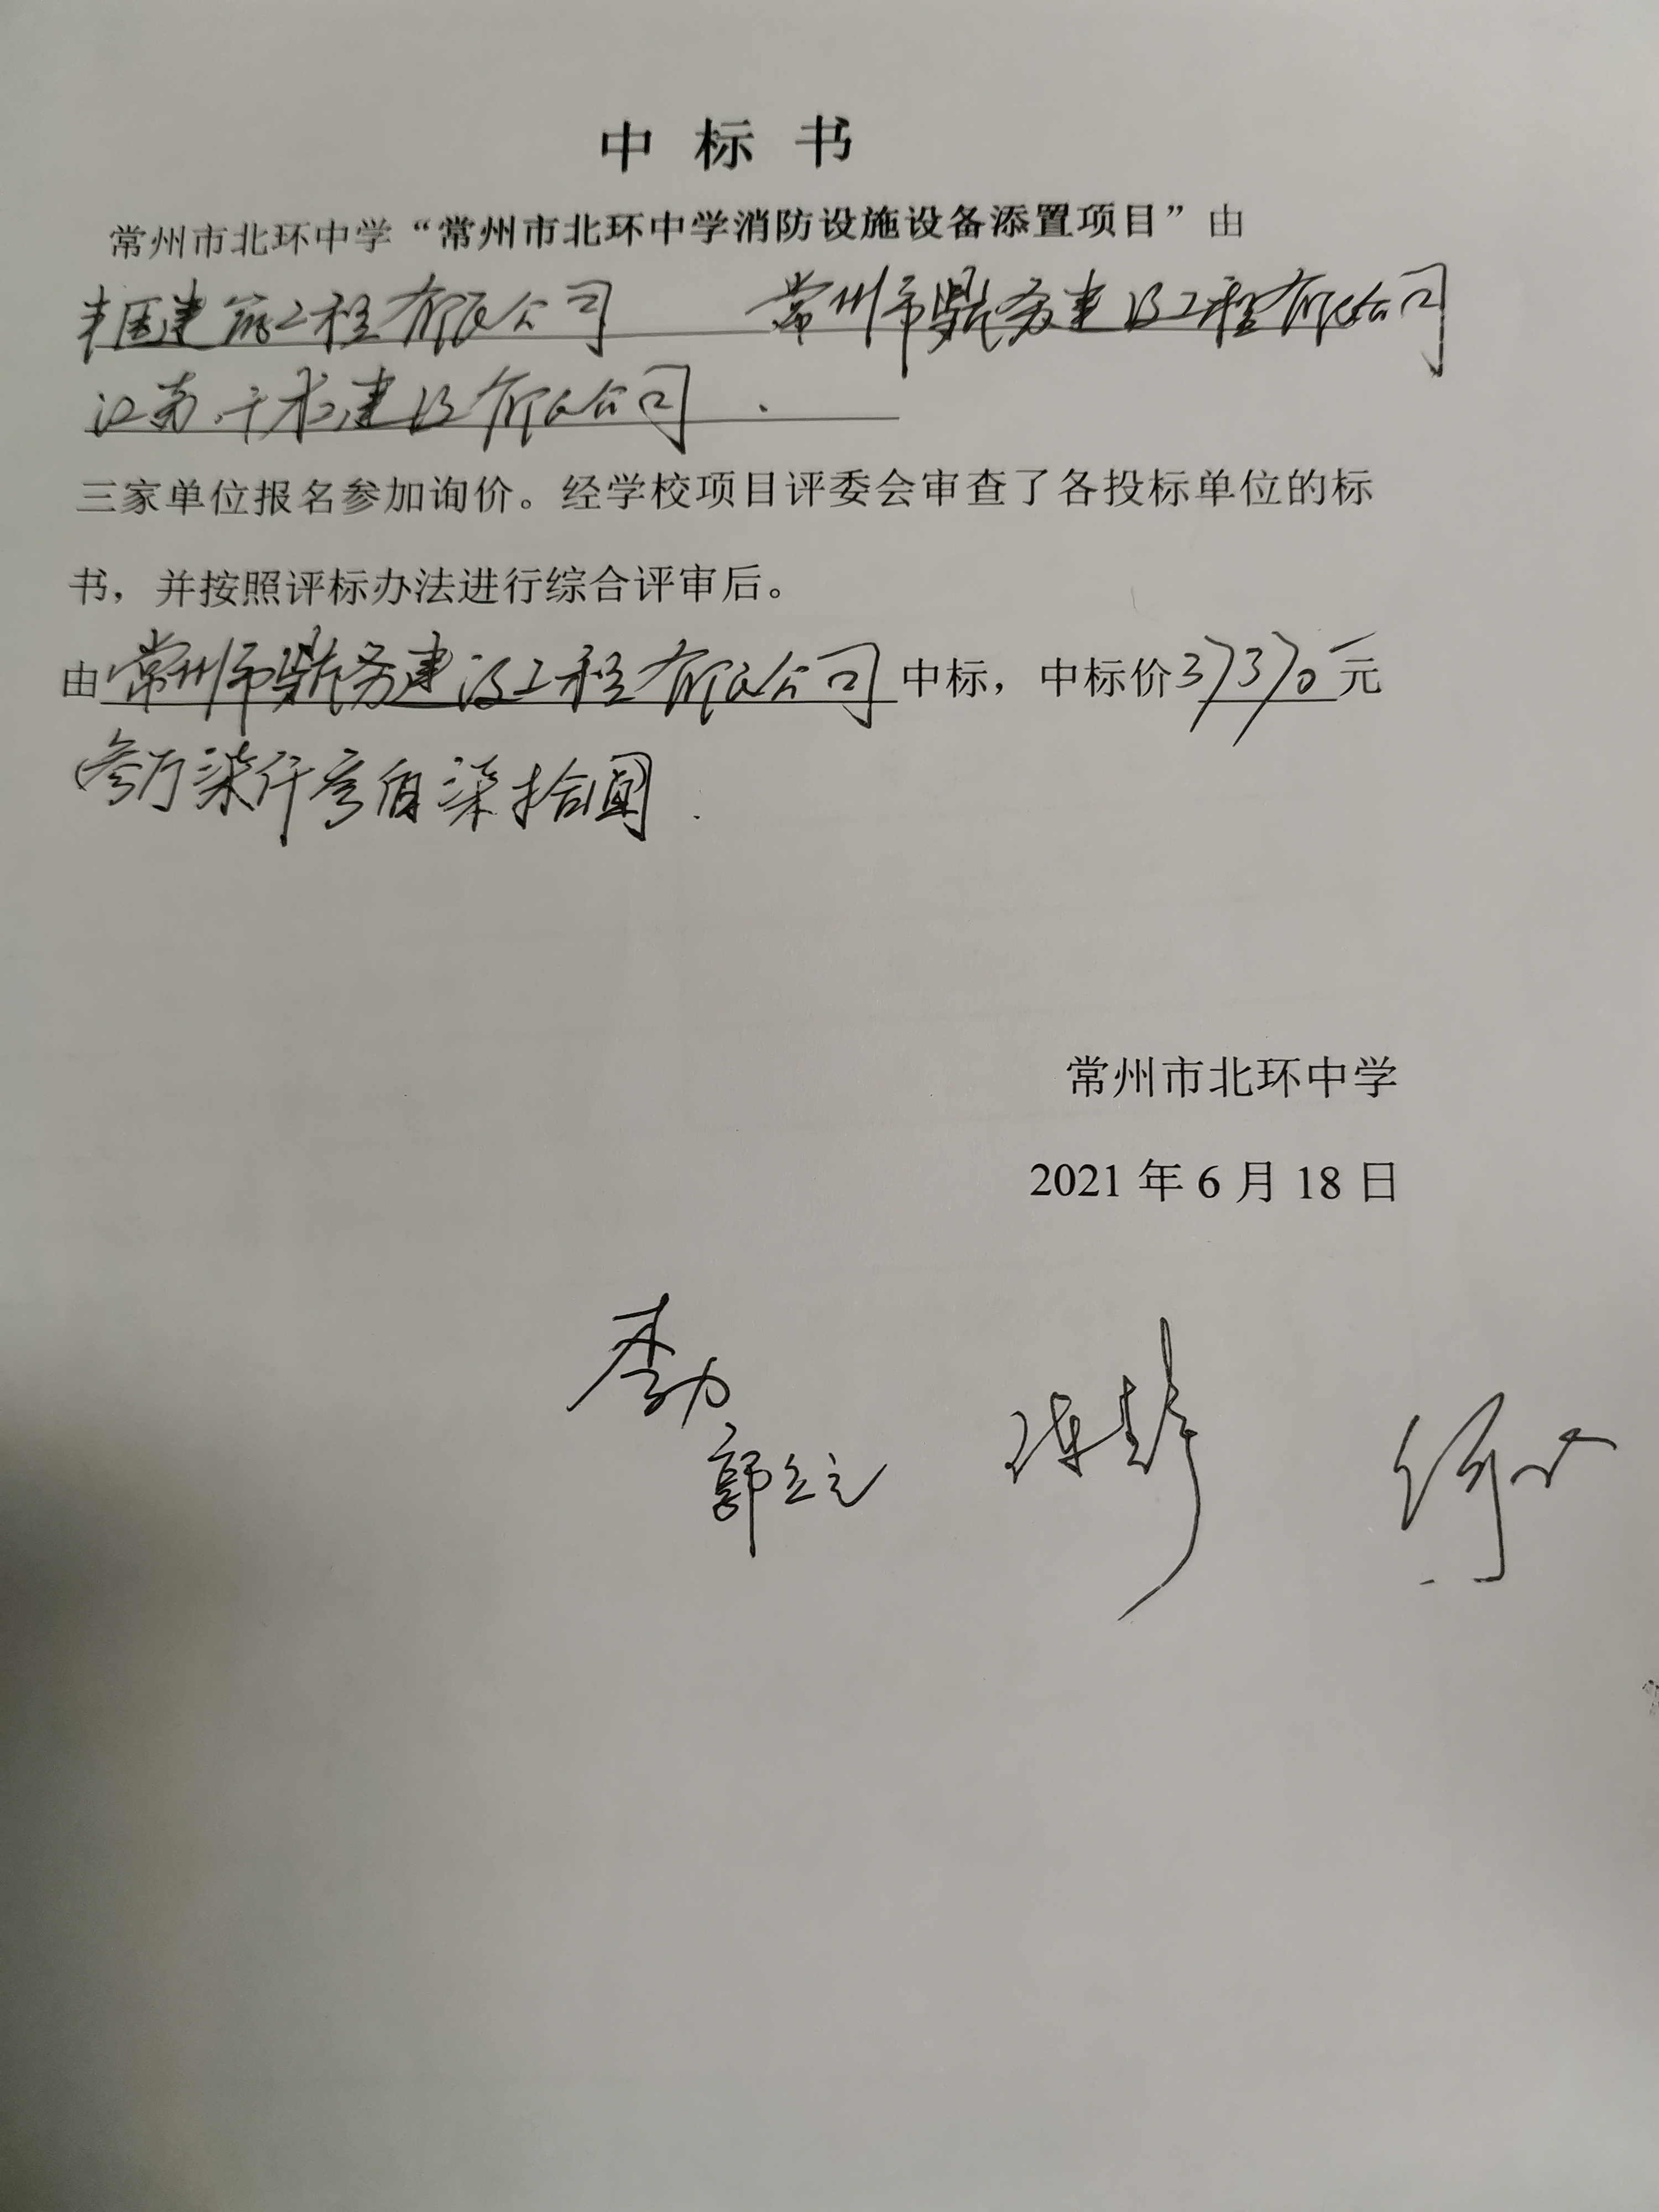 中标书
常州市北环中学“常州市北环中学消防设施设备添置项目”由
建筑工程有限公司 常州市鼎务建设工程有限公司
江南建设有限公司
三家单位报名参加询价。经学校项目评委会审查了各投标单位的标
书，并按照评标办法进行综合评审后。
由常州市鼎务建设工程有限公司中标，中标价37370元
叁万柒仟叁佰柒拾圆
常州市北环中学
2021年6月18日
李力
郭立